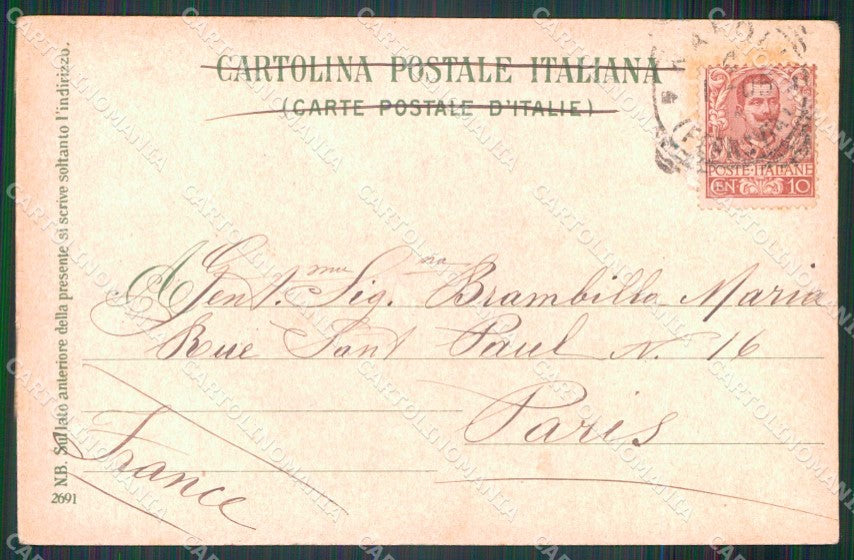 CARTOLINA POSTALE ITALIANA
(CARTE POSTALE D'ITALIE)
POSTE·ITALIANE
CEN 10
A Gent.ma Sig.na Brambilla Maria
Rue Sant Paul N. 16
Paris
France
N.B. Sul lato anteriore della presente si scrive soltanto l'indirizzo.
2691
CARTOLINOMANIA